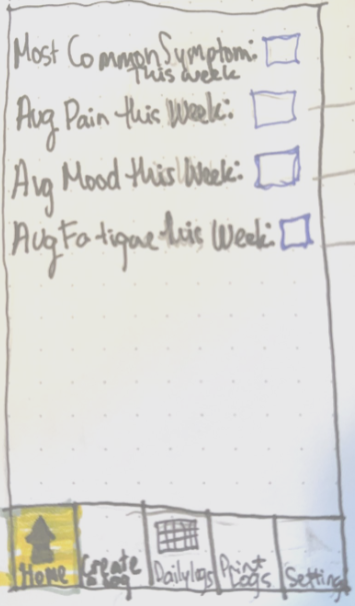 Most Common Symptom:
this week
Avg Pain this Week:
Avg Mood this Week:
Avg Fatigue this Week:
Home
Create
a Log
Daily logs
Print
Logs
Settings